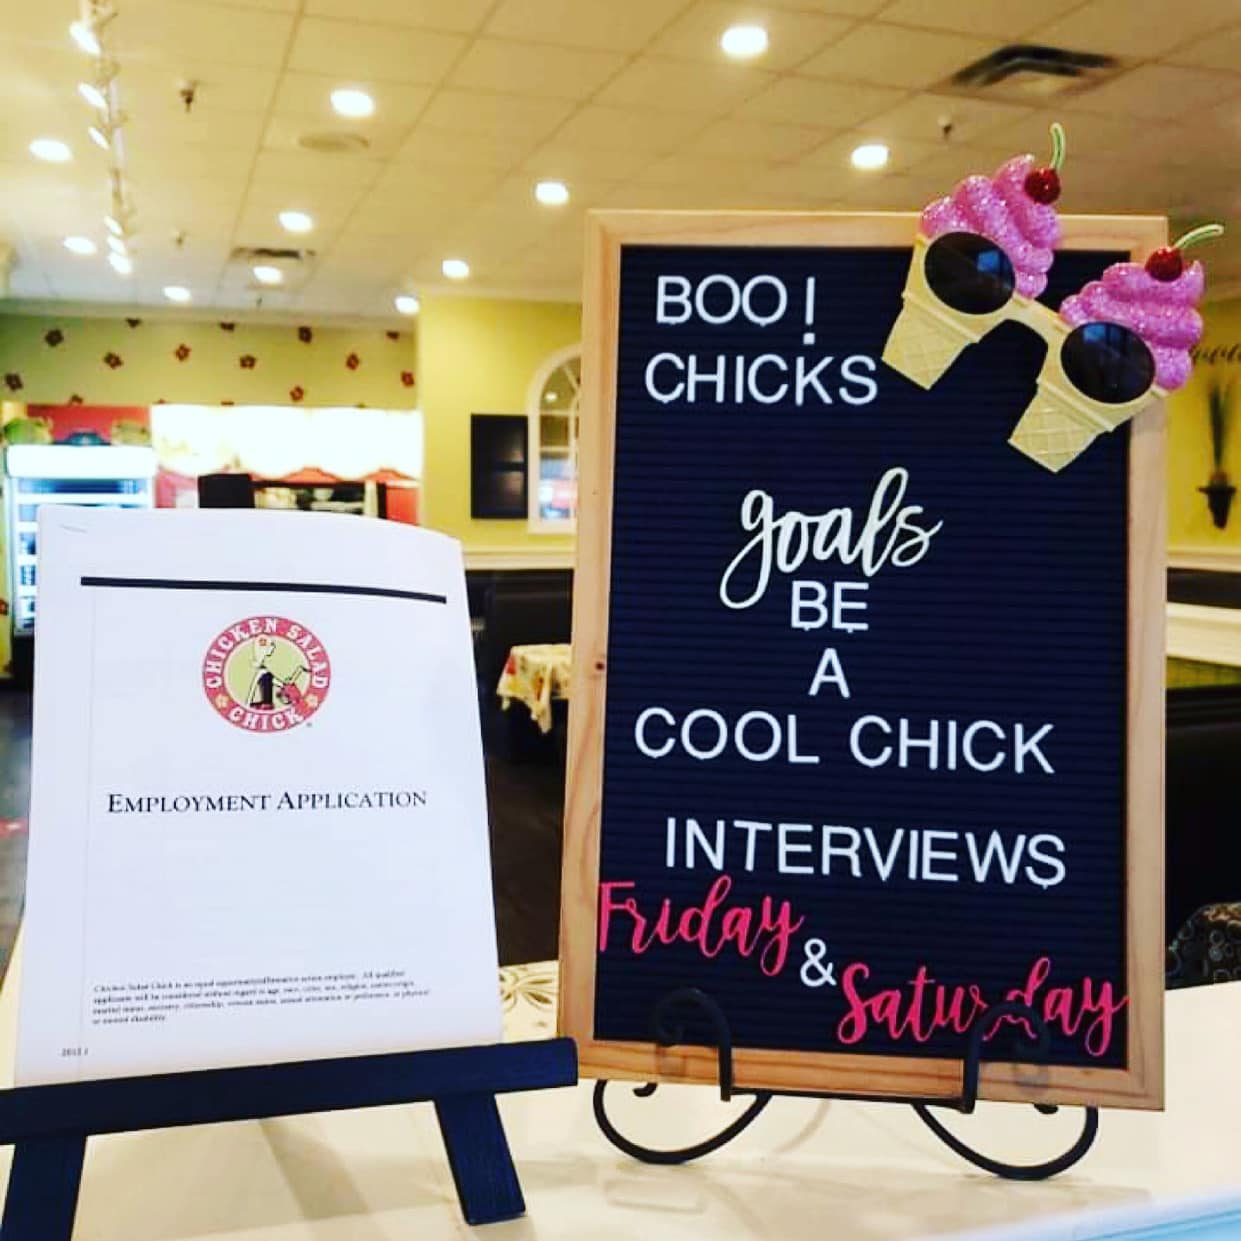 CHICKEN SALAD
CHICK
EMPLOYMENT APPLICATION
Chicken Salad Chick is an equal opportunity/affirmative action employer. All qualified
applicants will be considered without regard to age, race, color, sex, religion, national origin,
marital status, ancestry, citizenship, veteran status, sexual orientation or preference, or physical
or mental disability.
BOO!
CHICKS
goals
BE
A
COOL CHICK
INTERVIEWS
Friday
&
Saturday